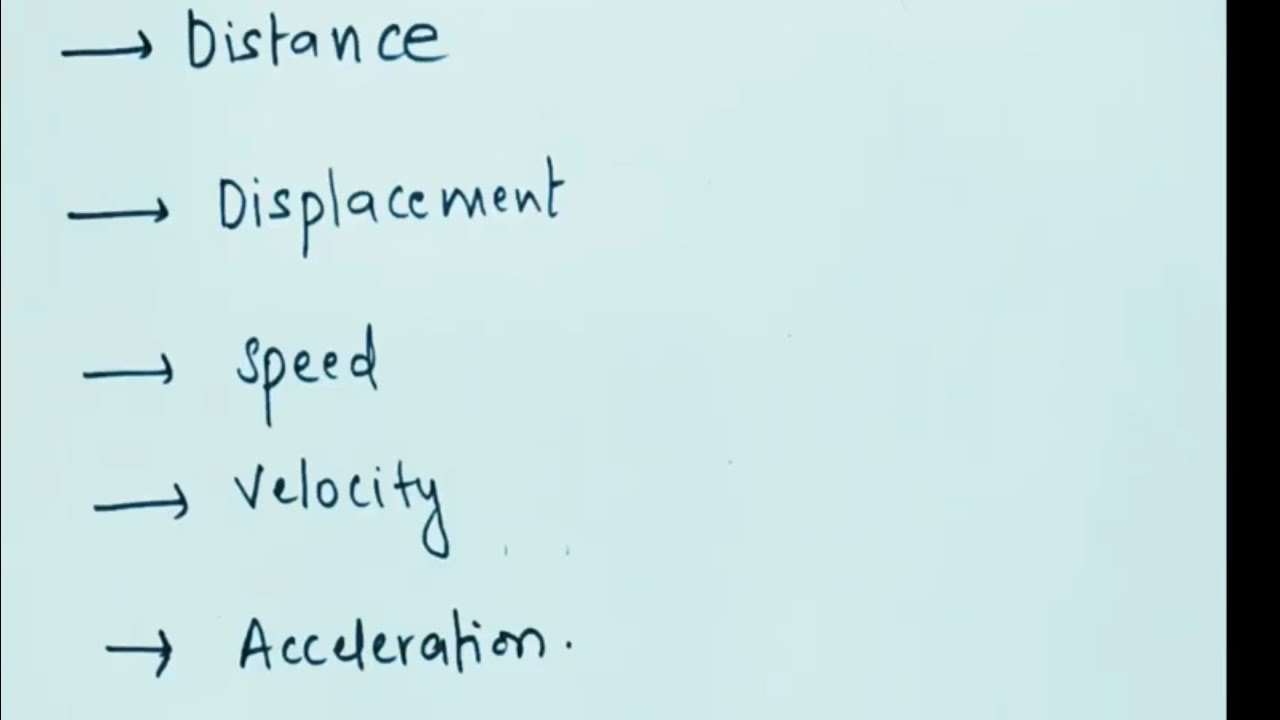 → Distance
→ Displacement
→ Speed
→ Velocity
→ Acceleration.